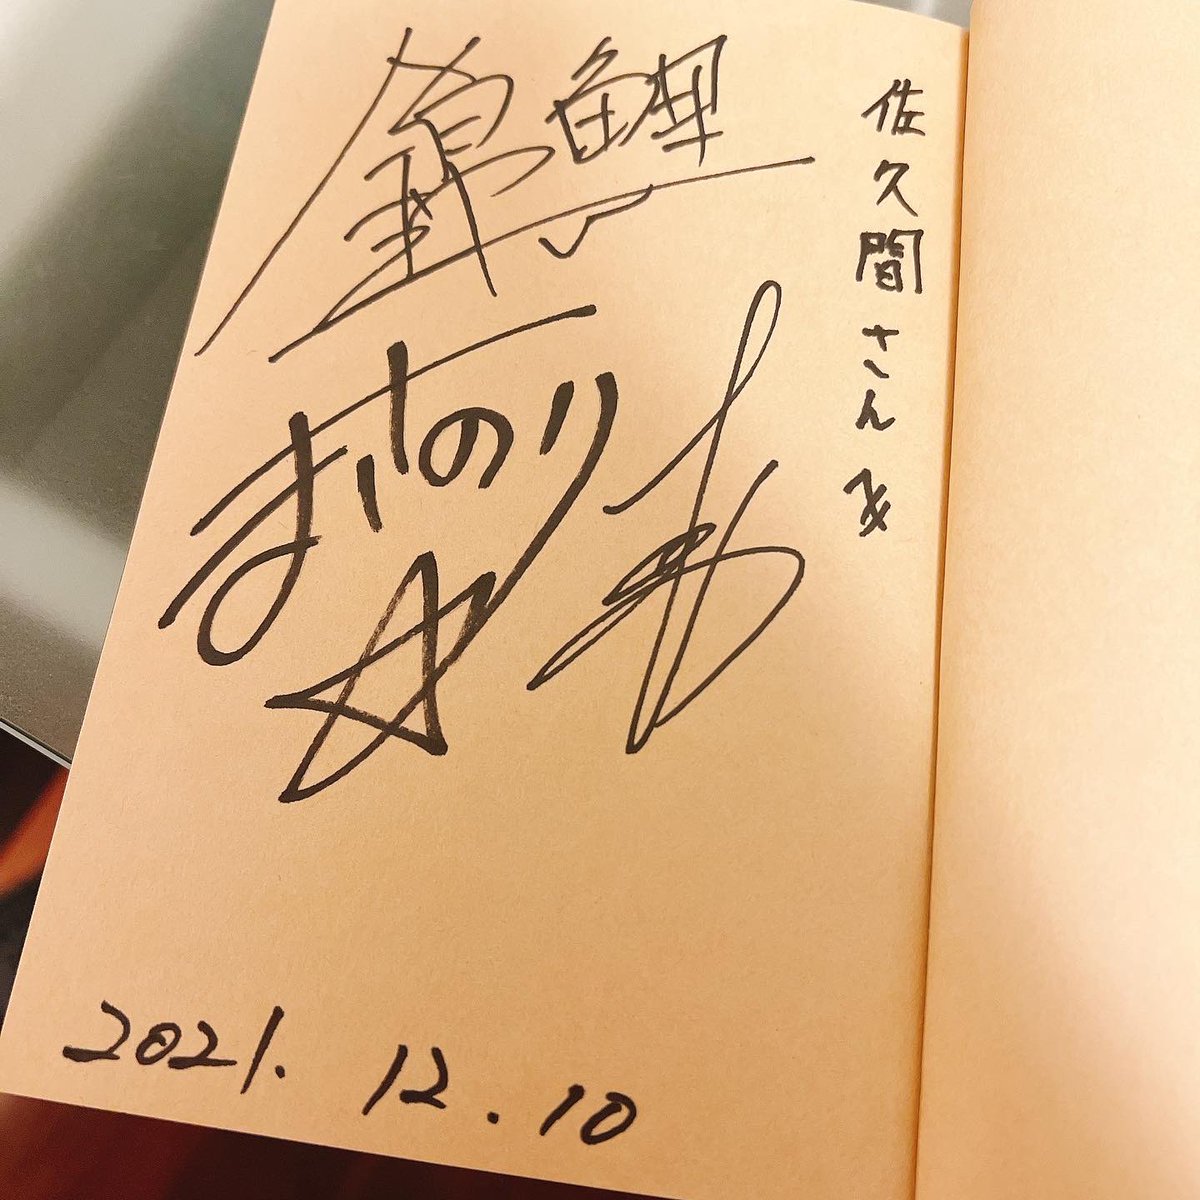 佐久間さん
錦鯉
まさのり☆
2021.12.10